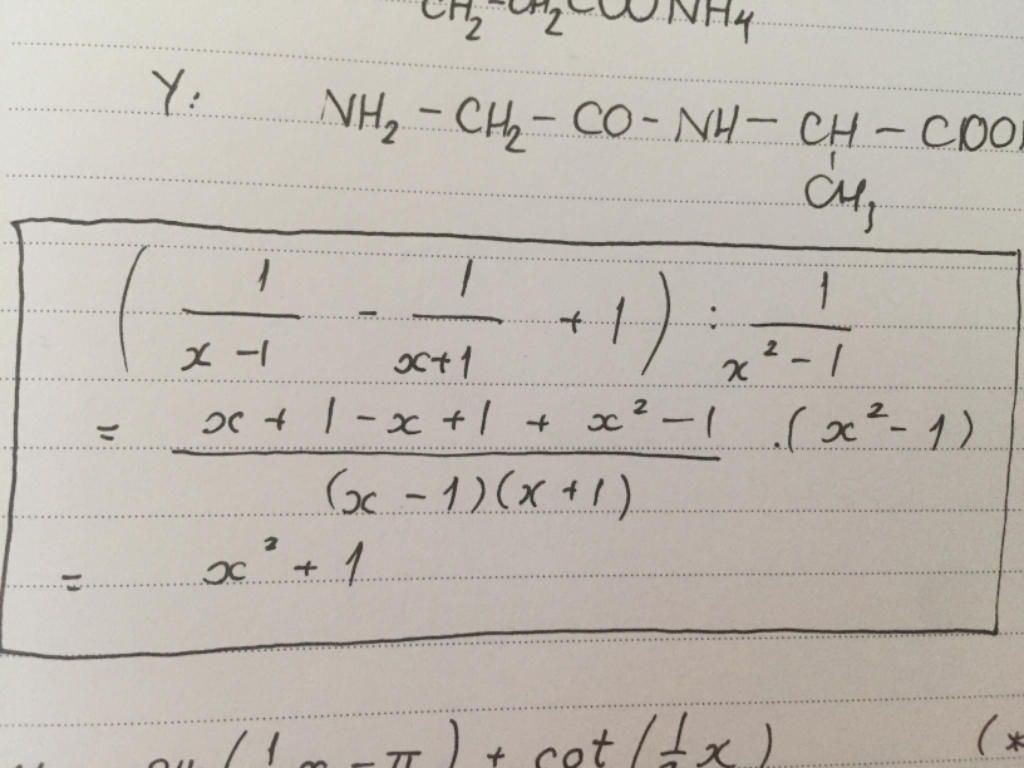 CH₂-CH₂COONH₄
Y: NH₂ - CH₂ - CO - NH - CH - COO
CH₃
( 1/(x-1) - 1/(x+1) + 1 ) : 1/(x²-1)
= (x + 1 - x + 1 + x² - 1)/((x - 1)(x + 1)) .(x² - 1)
= x² + 1
π ) + cot ( 1/2 x ) (*